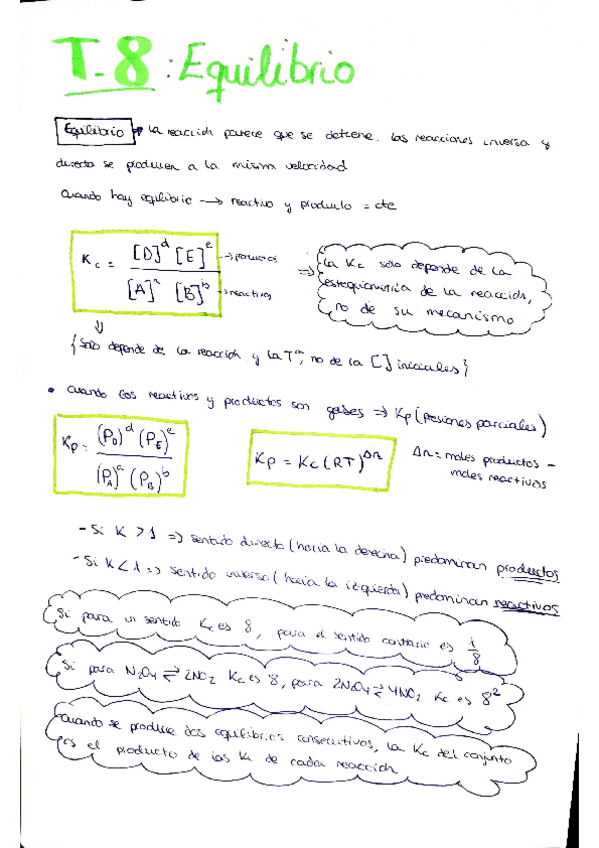 T.8: Equilibrio
Equilibrio → la reacción parece que se detiene. las reacciones inversa y
directa se producen a la misma velocidad
Cuando hay equilibrio → reactivo y producto = cte
Kc = [D]^d [E]^e / [A]^a [B]^b
→ productos
→ reactivos
⇒ La Kc solo depende de la
estequiometría de la reacción,
no de su mecanismo
⇓
{Solo depende de la reacción y la Tª, no de la [ ] iniciales}
• Cuando los reactivos y productos son gases ⇒ Kp (presiones parciales)
Kp = (P_D)^d (P_E)^e / (P_A)^a (P_B)^b
Kp = Kc (RT)^Δn
Δn = moles productos -
moles reactivos
- Si K > 1 => sentido directo (hacia la derecha) predominan productos
- Si K < 1 => sentido inverso (hacia la izquierda) predominan reactivos
Si para un sentido Kc es 8, para el sentido contrario es 1/8
Si para N₂O₄ ⇄ 2NO₂ Kc es 8, para 2N₂O₄ ⇄ 4NO₂ Kc es 8²
Cuando se produce dos equilibrios consecutivos, la Kc del conjunto
es el producto de las Kc de cada reacción